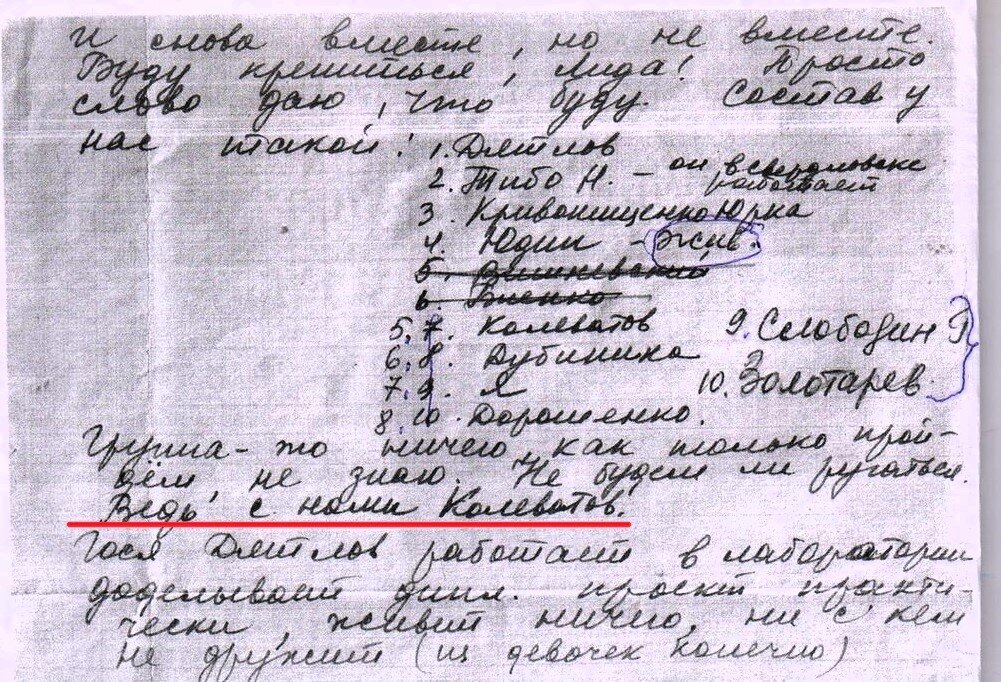 И снова вместе, но не вместе.
Буду крепиться, Лида! Просто
слово даю, что буду. Состав у
нас такой: 1. Дятлов
2. Тибо Н. – он в Свердловске работает
3. Кривонищенко Юрка
4. Юдин – жив.
5. Вишневский
6. Биенко
5. 7. Колеватов 9. Слободин Р
6. 8. Дубинина
7. 9. Я 10. Золотарев
8. 10. Дорошенко.
Группа-то ничего, как только прой-
дём не знаю. Не будем ли ругаться.
Ведь с нами Колеватов!
Гося Дятлов работает в лаборатории
доделывает дипл. проект практи-
чески, живёт ничего, ни с кем
не дружит (из девочек конечно)